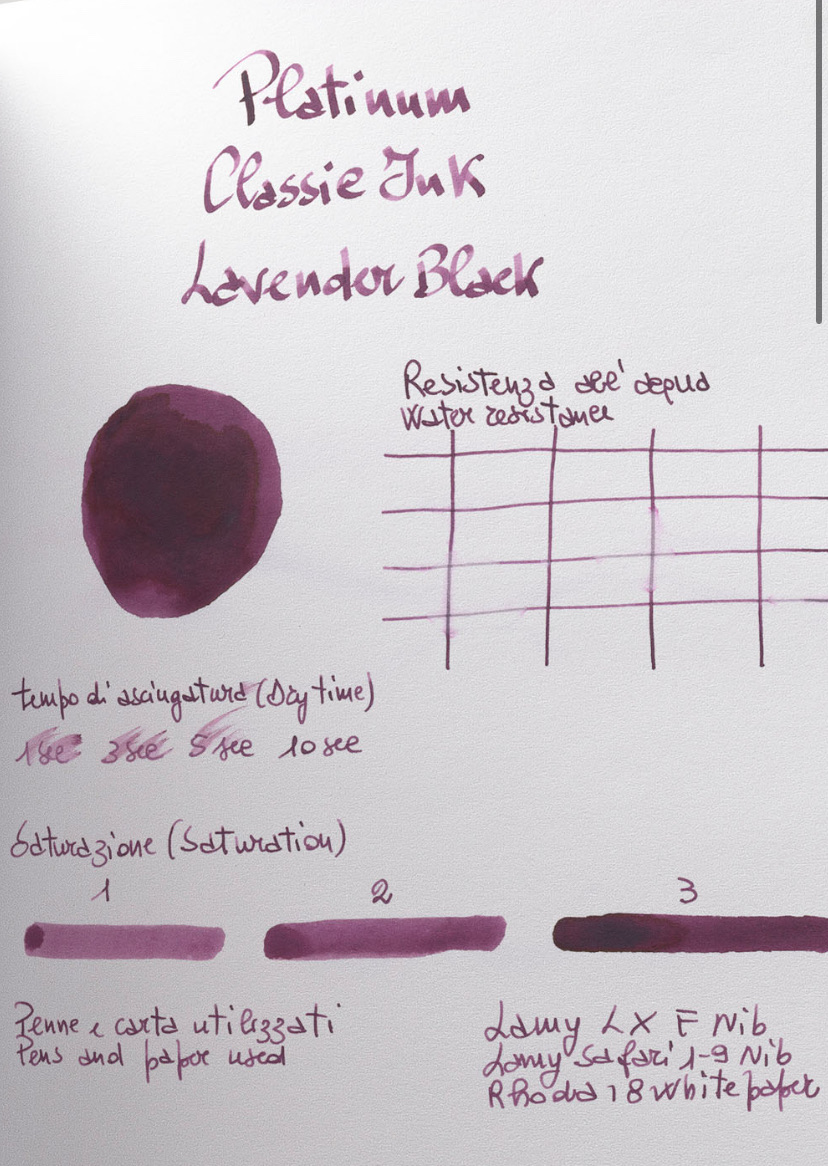 Platinum
Classic Ink
Lavender Black
Resistenza all' acqua
Water resistance
tempo di asciugatura (Dry time)
1 sec 3 sec 5 sec 10 sec
Saturazione (Saturation)
1 2 3
Penne e carta utilizzati
Pens and paper used
Lamy LX F Nib
Lamy Safari 1-9 Nib
Rhodia 18 White paper